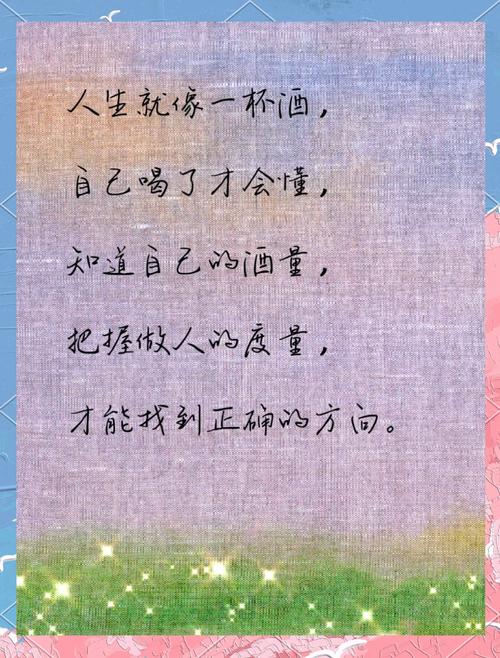 人生就像一杯酒，
自己喝了才会懂，
知道自己的酒量，
把握做人的度量，
才能找到正确的方向。